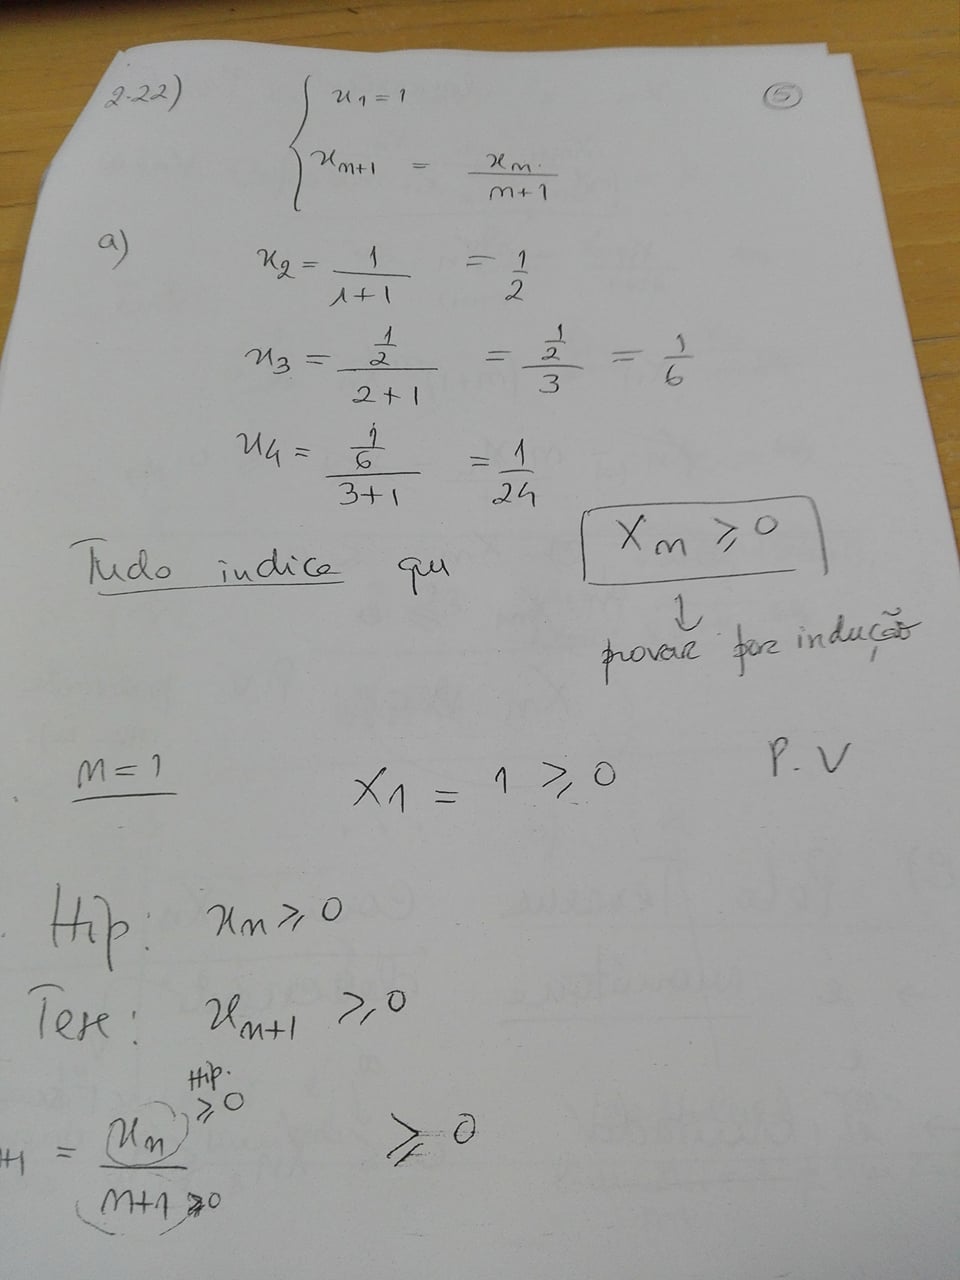 2.22) { x₁ = 1 ⑤
x_{n+1} = x_n / n+1
a) x₂ = 1 / 1+1 = 1/2
x₃ = 1/2 / 2+1 = 1/2 / 3 = 1/6
x₄ = 1/6 / 3+1 = 1/24
Tudo indica que X_n ≥ 0
↓
provar por indução
n = 1 X₁ = 1 ≥ 0 P.V
Hip: x_n ≥ 0
Tese: x_{n+1} ≥ 0
Hip.
+1 = x_n ≥ 0 / n+1 ≥ 0 ≥ 0